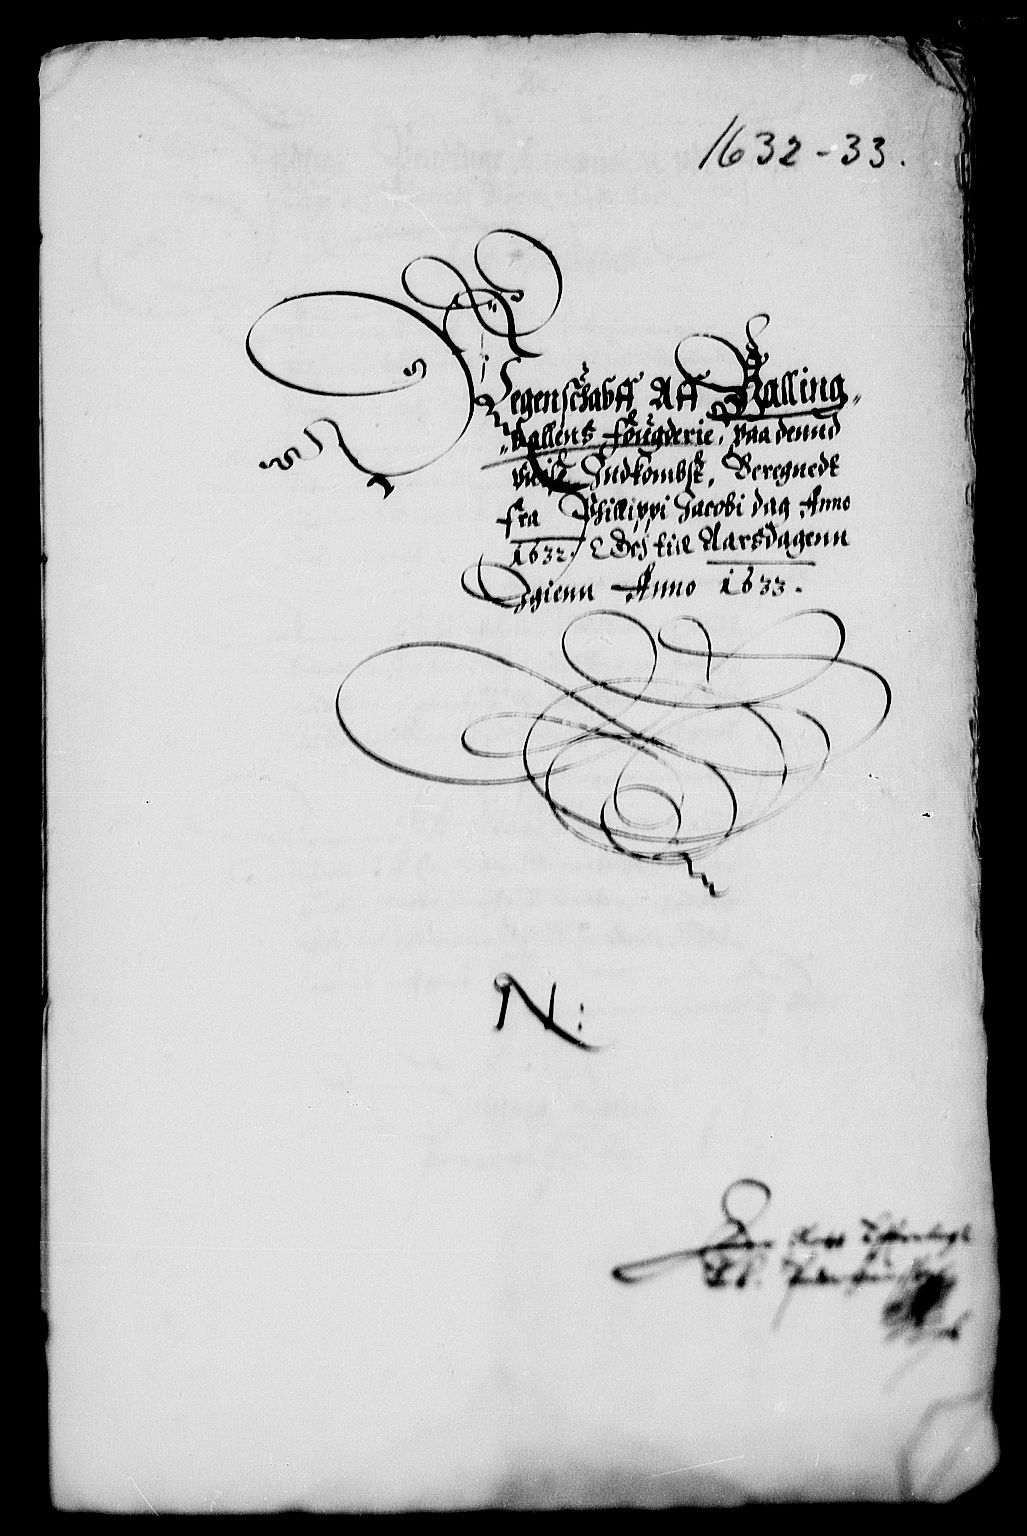 1632-33.
Regenschabff Aff Halling,,
,,dallens fougderie, paa dennd
vuiss Indkombst, Beregnedt
fra Philippi Jacobi dag Anno
1632. Och till Aarsdagenn
Igienn Anno 1633.
N: